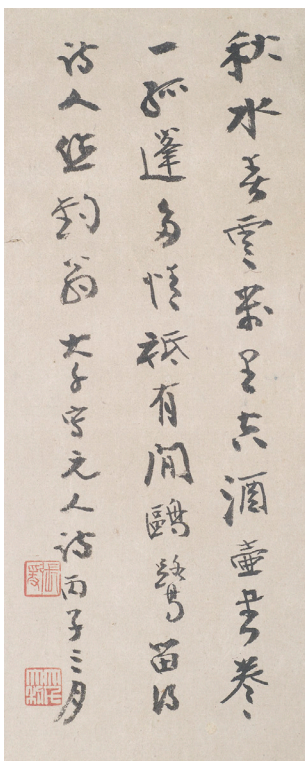 秋水春雲萬里空酒壺書卷
一孤蓬多情祗有閒鷗鷺留得
詩人作釣翁 大千寫元人詩丙子三月
張爰